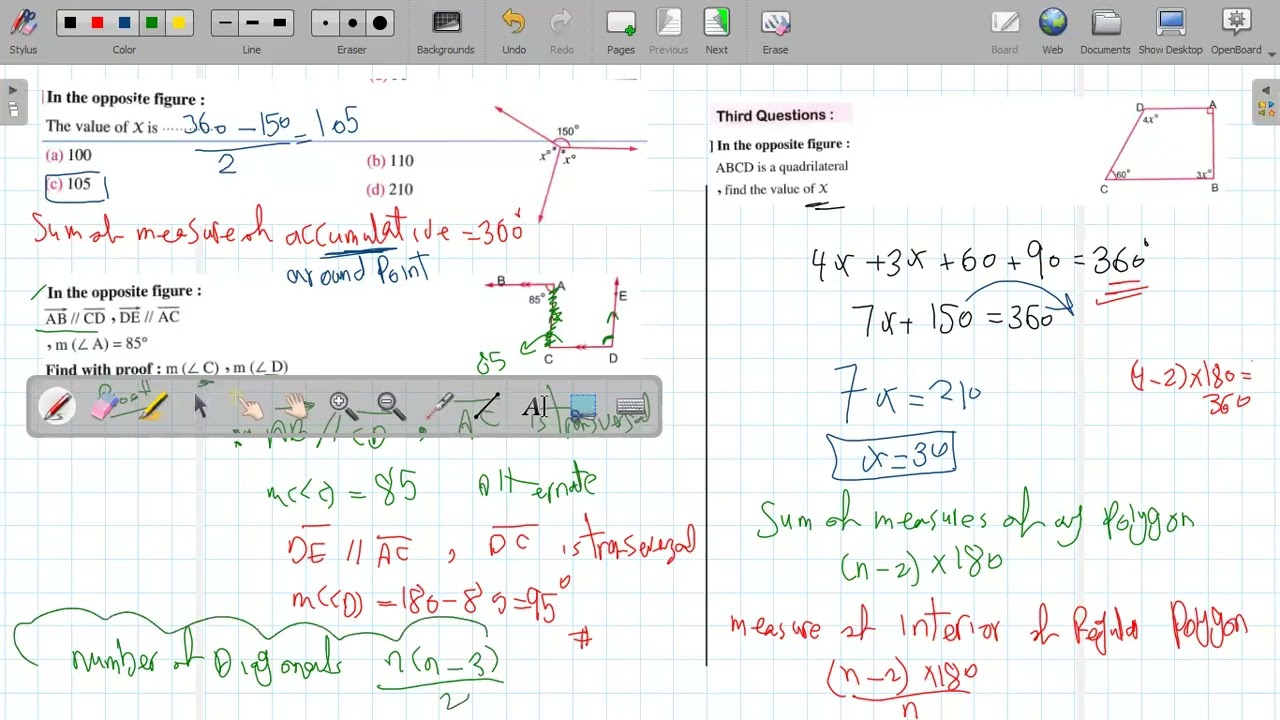 Stylus
Color
Line
Eraser
Backgrounds
Undo
Redo
Pages
Previous
Next
Erase
Board
Web
Documents
Show Desktop
OpenBoard
In the opposite figure :
The value of X is ....... 360 - 150 = 105
2
(a) 100
(b) 110
(c) 105
(d) 210
150°
x°
x°
Sum of measure of accumulative = 360°
around Point
In the opposite figure :
AB // CD , DE // AC
, m (∠ A) = 85°
Find with proof : m (∠ C) , m (∠ D)
B
A
85°
E
C
D
85
Proof
AB // CD , AC is transversal
m(<c) = 85 alternate
DE // AC , DC is transversal
m(<D) = 180 - 85 = 95°
#
number of Diagonals n(n-3)
2
Third Questions :
] In the opposite figure :
ABCD is a quadrilateral
, find the value of X
D
A
4x°
60°
3x°
C
B
4x + 3x + 60 + 90 = 360°
7x + 150 = 360
7x = 210
x = 30
(4-2) x 180 =
360
Sum of measures of of Polygon
(n-2) x 180
measure of interior of Regular Polygon
(n-2) x 180
n